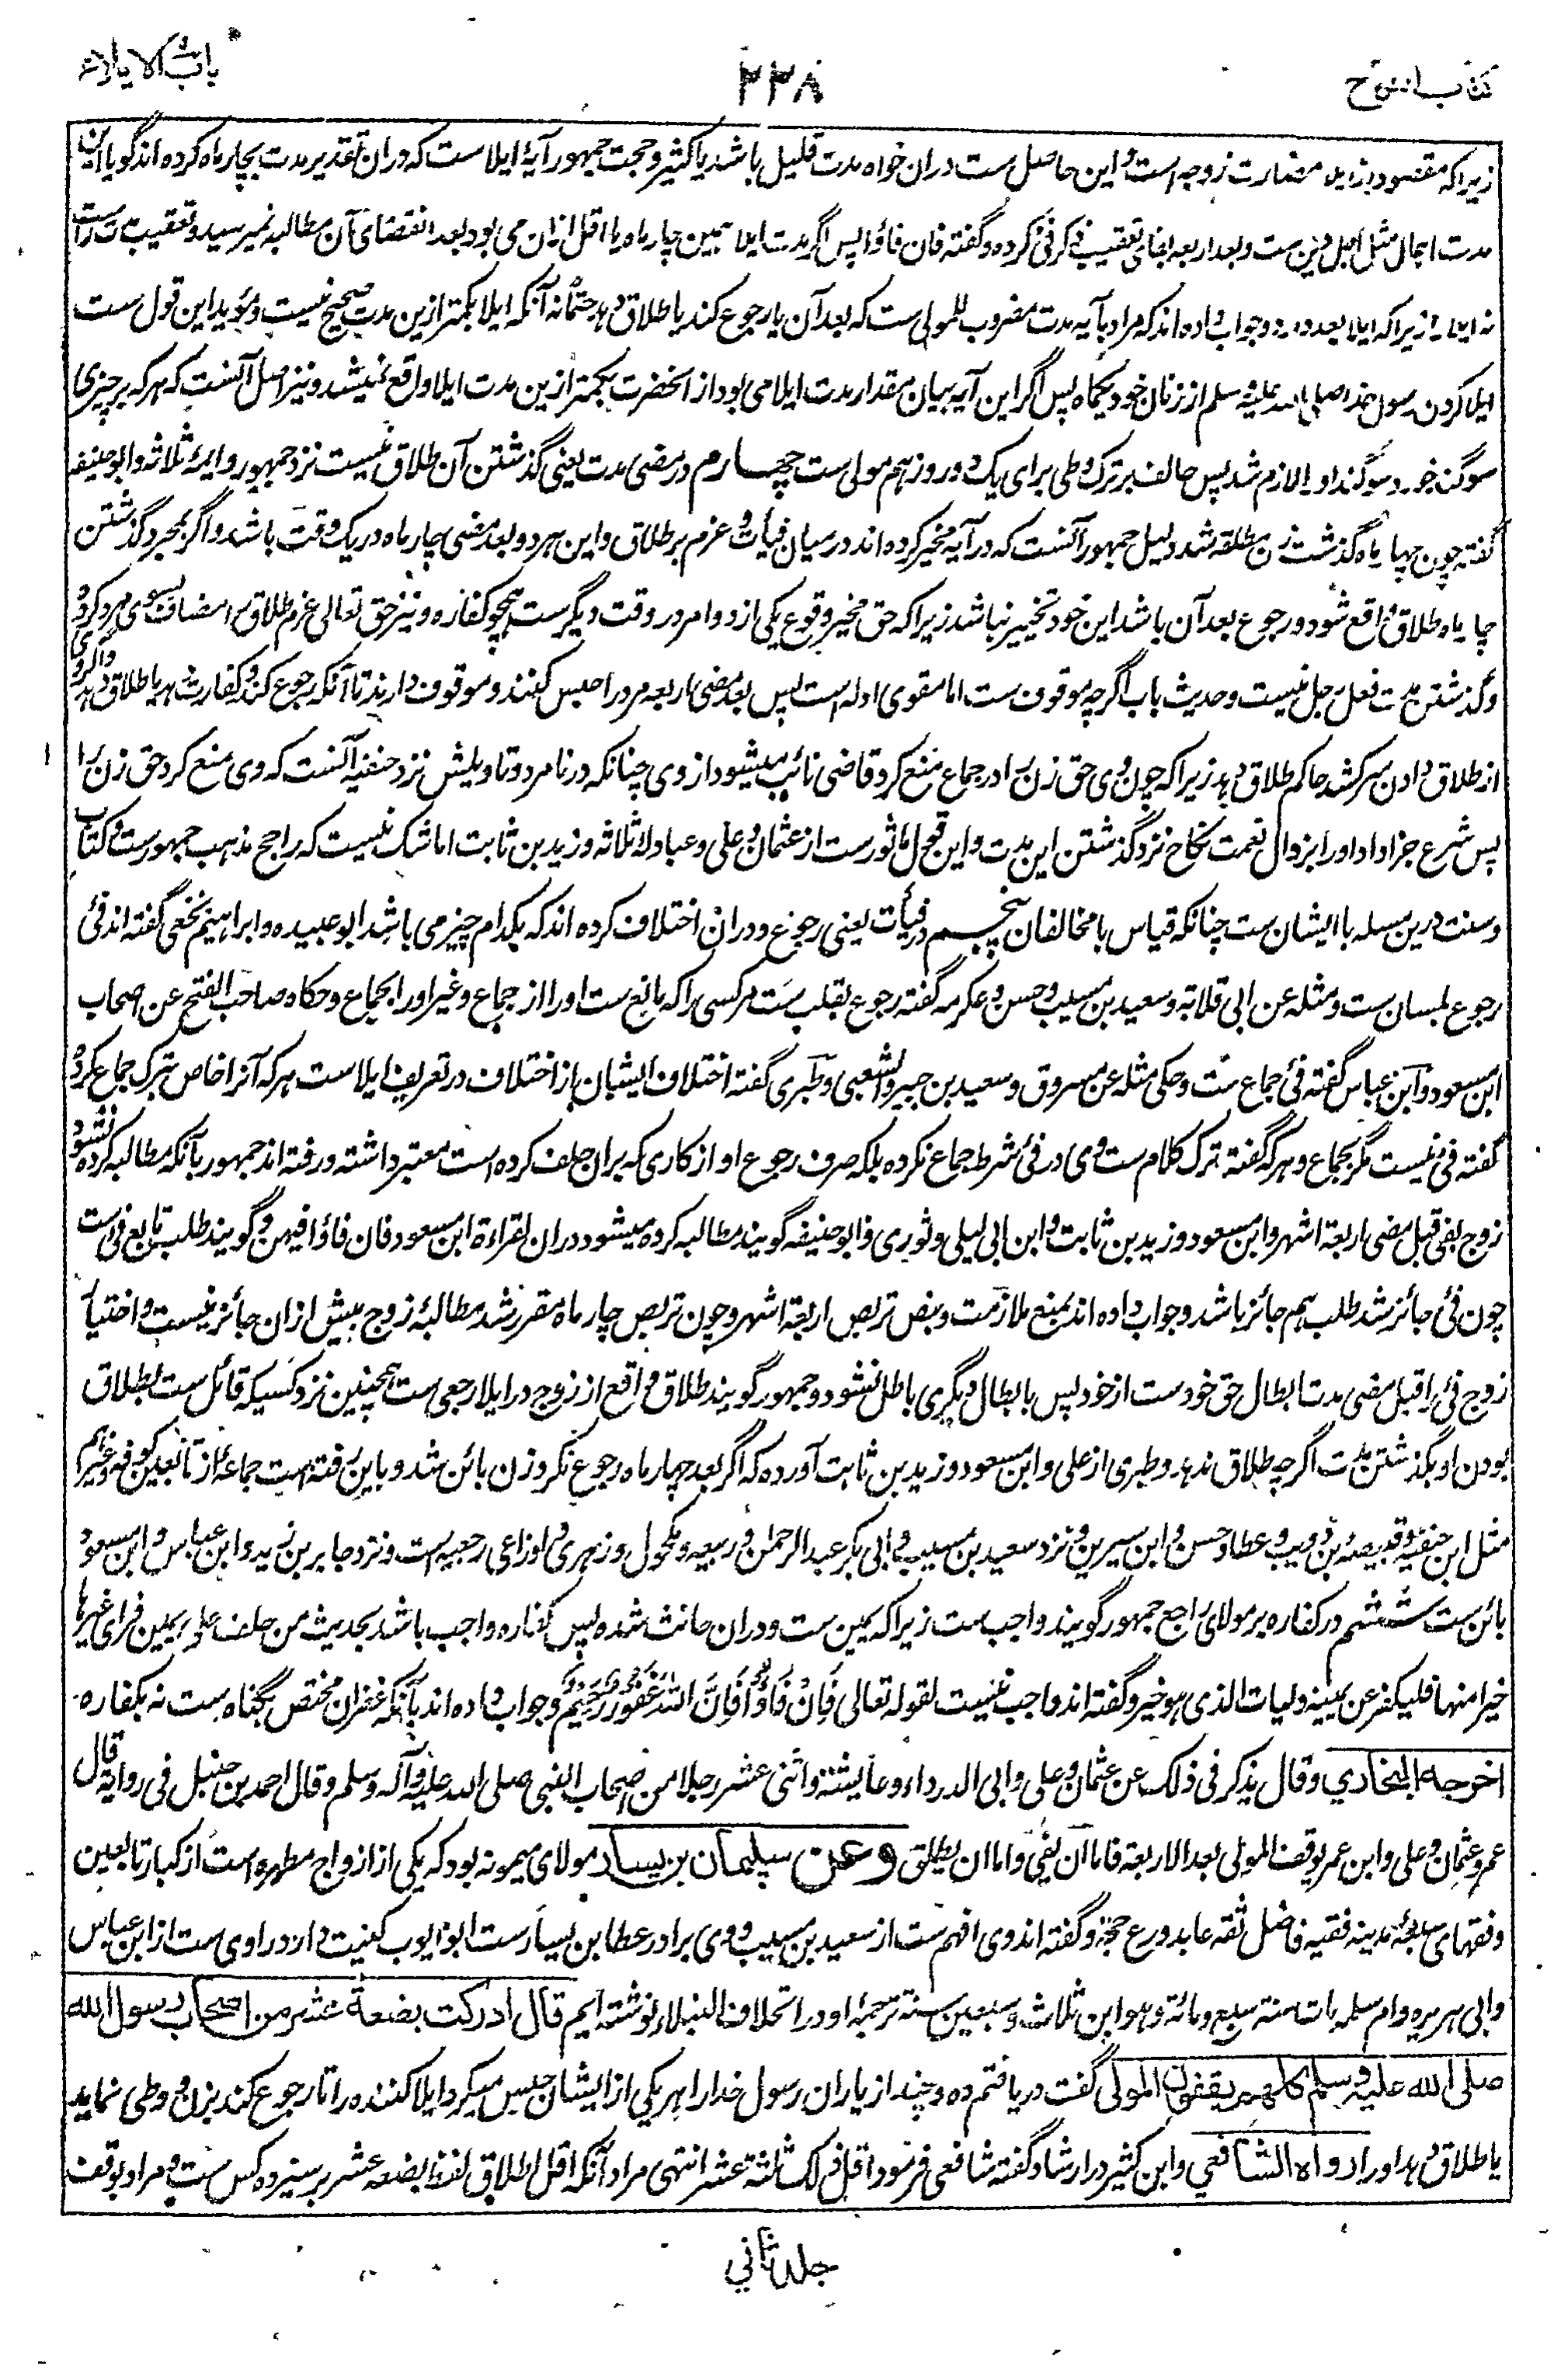 کتاب النکاح
۲۳۸
باب الایلاء
زیراکه مقصود از ایلا مضارت زوجه است و این حاصل ست دران خواه مدت قلیل باشد یا کثیر و حجت جمهور آیهٔ ایلاست که دران تقدیر مدت بچار ماه کرده اند گویا این
مدت امهال مثل اجل دین ست و بعد اربعه بفای تعقیب ذکر فئ کرده و گفته فان فاؤا پس اگر مدت ایلا همین چار ماه یا اقل ازان می بود بعد انقضای آن مطالبه نمیرسید و تعقیب مدت راست
نه ایلا را زیراکه ایلا بعد مدت و جواب داده اند که مراد بآیه مدت مضروب للمولی ست که بعد آن یا رجوع کند یا طلاق دهد حتما نه آنکه ایلا بکمتر ازین مدت صحیح نیست و مؤید این قول ست
ایلا کردن رسول خدا صلی الله علیه وسلم از زنان خود یکماه پس اگر این آیه بیان مقدار مدت ایلا می بود از آنحضرت بکمتر ازین مدت ایلا واقع نمیشد و نیز اصل آنست که هر که بر چیزی
سوگند خورد سوگند او را لازم شد پس حالف بر ترک وطی برای یک دو روز هم مولی ست چهارم در مضی مدت یعنی گذشتن آن طلاق نیست نزد جمهور و ایمهٔ ثلاثه و ابو حنیفه
گفته چون چهار ماه گذشت زن مطلقه شد دلیل جمهور آنست که در آیه مخیر کرده اند در میان فیأت و عزم بر طلاق و این هر دو بعد مضی چار ماه در یک وقت باشد و اگر بمجرد گذشتن
چار ماه طلاق واقع شود و رجوع بعد آن باشد این خود تخییر نباشد زیراکه حق مخیر وقوع یکی از دو امر در وقت دیگرست همچو کفاره و نیز حق تعالی عزم طلاق را مضاف بسوی مرد کرده
و گذشتن مدت فعل رجل نیست و حدیث باب اگرچه موقوف ست اما مقوی ادله است پس بعد مضی اربعه مرد را حبس کنند و موقوف دارند تا آنکه رجوع کند و کفارت دهد یا طلاق دهد و اگر وی
از طلاق دادن سرکشد حاکم طلاق دهد زیراکه چون وی حق زن را در جماع منع کرد قاضی نائب میشود از وی چنانکه در نامرد و تاویلش نزد حنفیه آنست که وی منع کرد حق زن را
پس شرع جزا داد او را بزوال نعمت نکاح نزد گذشتن این مدت و این قول ماثور ست از عثمان و علی و عبادلهٔ ثلاثه و زید بن ثابت اما شک نیست که راجح مذهب جمهورست و کتاب
و سنت درین مسله با ایشان ست چنانکه قیاس با مخالفان پنجم در فیأت یعنی رجوع و دران اختلاف کرده اند که بکدام چیز می باشد ابو عبیده و ابراهیم نخعی گفته اند فئ
رجوع بلسان ست و مثله عن ابی قلابة و سعید بن مسیب و حسن و عکرمه گفته رجوع بقلب ست مر کسی را که مانع ست او را از جماع و غیر او را بجماع و حکاه صاحب الفتح عن اصحاب
ابن مسعود و ابن عباس گفته فئ جماع ست و حکی مثله عن مسروق و سعید بن جبیر و الشعبی و طبری گفته اختلاف ایشان از اختلاف در تعریف ایلاست هر که آنرا خاص بترک جماع کرده
گفته فئ نیست مگر بجماع و هر که گفته ترک کلام ست وی در فئ شرط جماع نکرده بلکه صرف رجوع او از کاری که بران حلف کرده است معتبر داشته و رفته اند جمهور بآنکه مطالبه کرده نشود
زوج بفئ قبل مضی اربعة اشهر و ابن مسعود و زید بن ثابت و ابن ابی لیلی و ثوری و ابو حنیفه گویند مطالبه کرده میشود دران لقراءة ابن مسعود فان فاؤا فیهن و گویند طلب تابع فئ ست
چون فئ جائز شد طلب هم جائز باشد و جواب داده اند بمنع ملازمت و بنص تربص اربعة اشهر و چون تربص چار ماه مقرر شد مطالبهٔ زوج پیش ازان جائز نیست و اختیار
زوج فئ را قبل مضی مدت ابطال حق خودست از خود پس بابطال دیگری باطل نشود و جمهور گویند طلاق واقع از زوج در ایلا رجعی ست همچنین نزد کسیکه قائل ست بطلاق
بودن او بگذشتن مدت اگرچه طلاق ندهد و طبری از علی و ابن مسعود و زید بن ثابت آورده که اگر بعد چهار ماه رجوع نکرد زن بائن شد و باین رفته است جماعهٔ از تابعین کوفه و غیرهم
مثل ابن حنفیه و قبیصه بن ذویب و عطا و حسن و ابن سیرین و نزد سعید بن مسیب و ابی بکر عبد الرحمن و ربیعه و مکحول و زهری و اوزاعی رجعیه است و نزد جابر بن زید و ابن عباس و ابن مسعود
بائن ست ششم در کفاره بر مولای راجع جمهور گویند واجب ست زیراکه یمین ست و دران حانث شده پس کفاره واجب باشد بحدیث من حلف علی یمین فرای غیرها
خیرا منها فلیکفر عن یمینه ولیات الذی هو خیر و گفته اند واجب نیست لقوله تعالی فَاِنْ فَاؤُا فَاِنَّ اللّٰهَ غَفُوْرٌ رَّحِیْمٌ و جواب داده اند بآنکه غفران مختص بگناه ست نه بکفاره
اخرجه البخاري وقال یذکر فی ذلک عن عثمان وعلی وابی الدرداء وعایشة واثنی عشر رجلا من اصحاب النبی صلی الله علیه وآله وسلم وقال احمد بن حنبل فی روایة قال
عمر وعثمان وعلی وابن عمر یوقف المولی بعد الاربعة فاما ان یفئ واما ان یطلق وعن سلیمان بن یسار مولای میمونه بود که یکی از ازواج مطهره است از کبار تابعین
و فقهای سبعهٔ مدینه فقیه فاضل ثقه عابد ورع حجة و گفته اند وی افهم ست از سعید بن مسیب و وی برادر عطا بن یسارست ابو ایوب کنیت دارد راوی ست از ابن عباس
و ابی هریره و ام سلمه مات سنة سبع ومائة وهو ابن ثلاث وسبعین سنة ترجمهٔ او در اتحاف النبلاء نوشته ایم قال ادرکت بضعة عشر من اصحاب رسول الله
صلی الله علیه وسلم کلهم یقفون المولی گفت دریافتم ده و چند از یاران رسول خدا را هر یکی از ایشان حبس میکرد ایلا کننده را تا رجوع کند بزن و وطی نماید
یا طلاق دهد او را رواه الشافعي و ابن کثیر در ارشاد گفته شافعی فرمود اقل ذلک ثلثة عشر انتهی مراد آنکه اقل اطلاق لفظ بضعه عشر بر سیزده کس ست و مراد بوقف
جلد ثاني